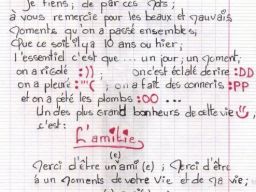 Je tiens, de par ces mots,
à vous remercier pour les beaux et mauvais
moments qu'on a passé ensembles,
Que ce soit il y a 10 ans ou hier,
l'essentiel c'est que ... un jour, un moment,
on a rigolé :)) ; on c'est éclaté de rire :DD
on a pleuré :'''( ; on a fait des conneris :PP
et on a pété les plombs :OO ...
Un des plus grand bonheurs de cette vie
c'est :
L'amitié
(e)
Merci d'être un ami (e) ; Merci d'être
à un moments de votre vie et de ma vie;